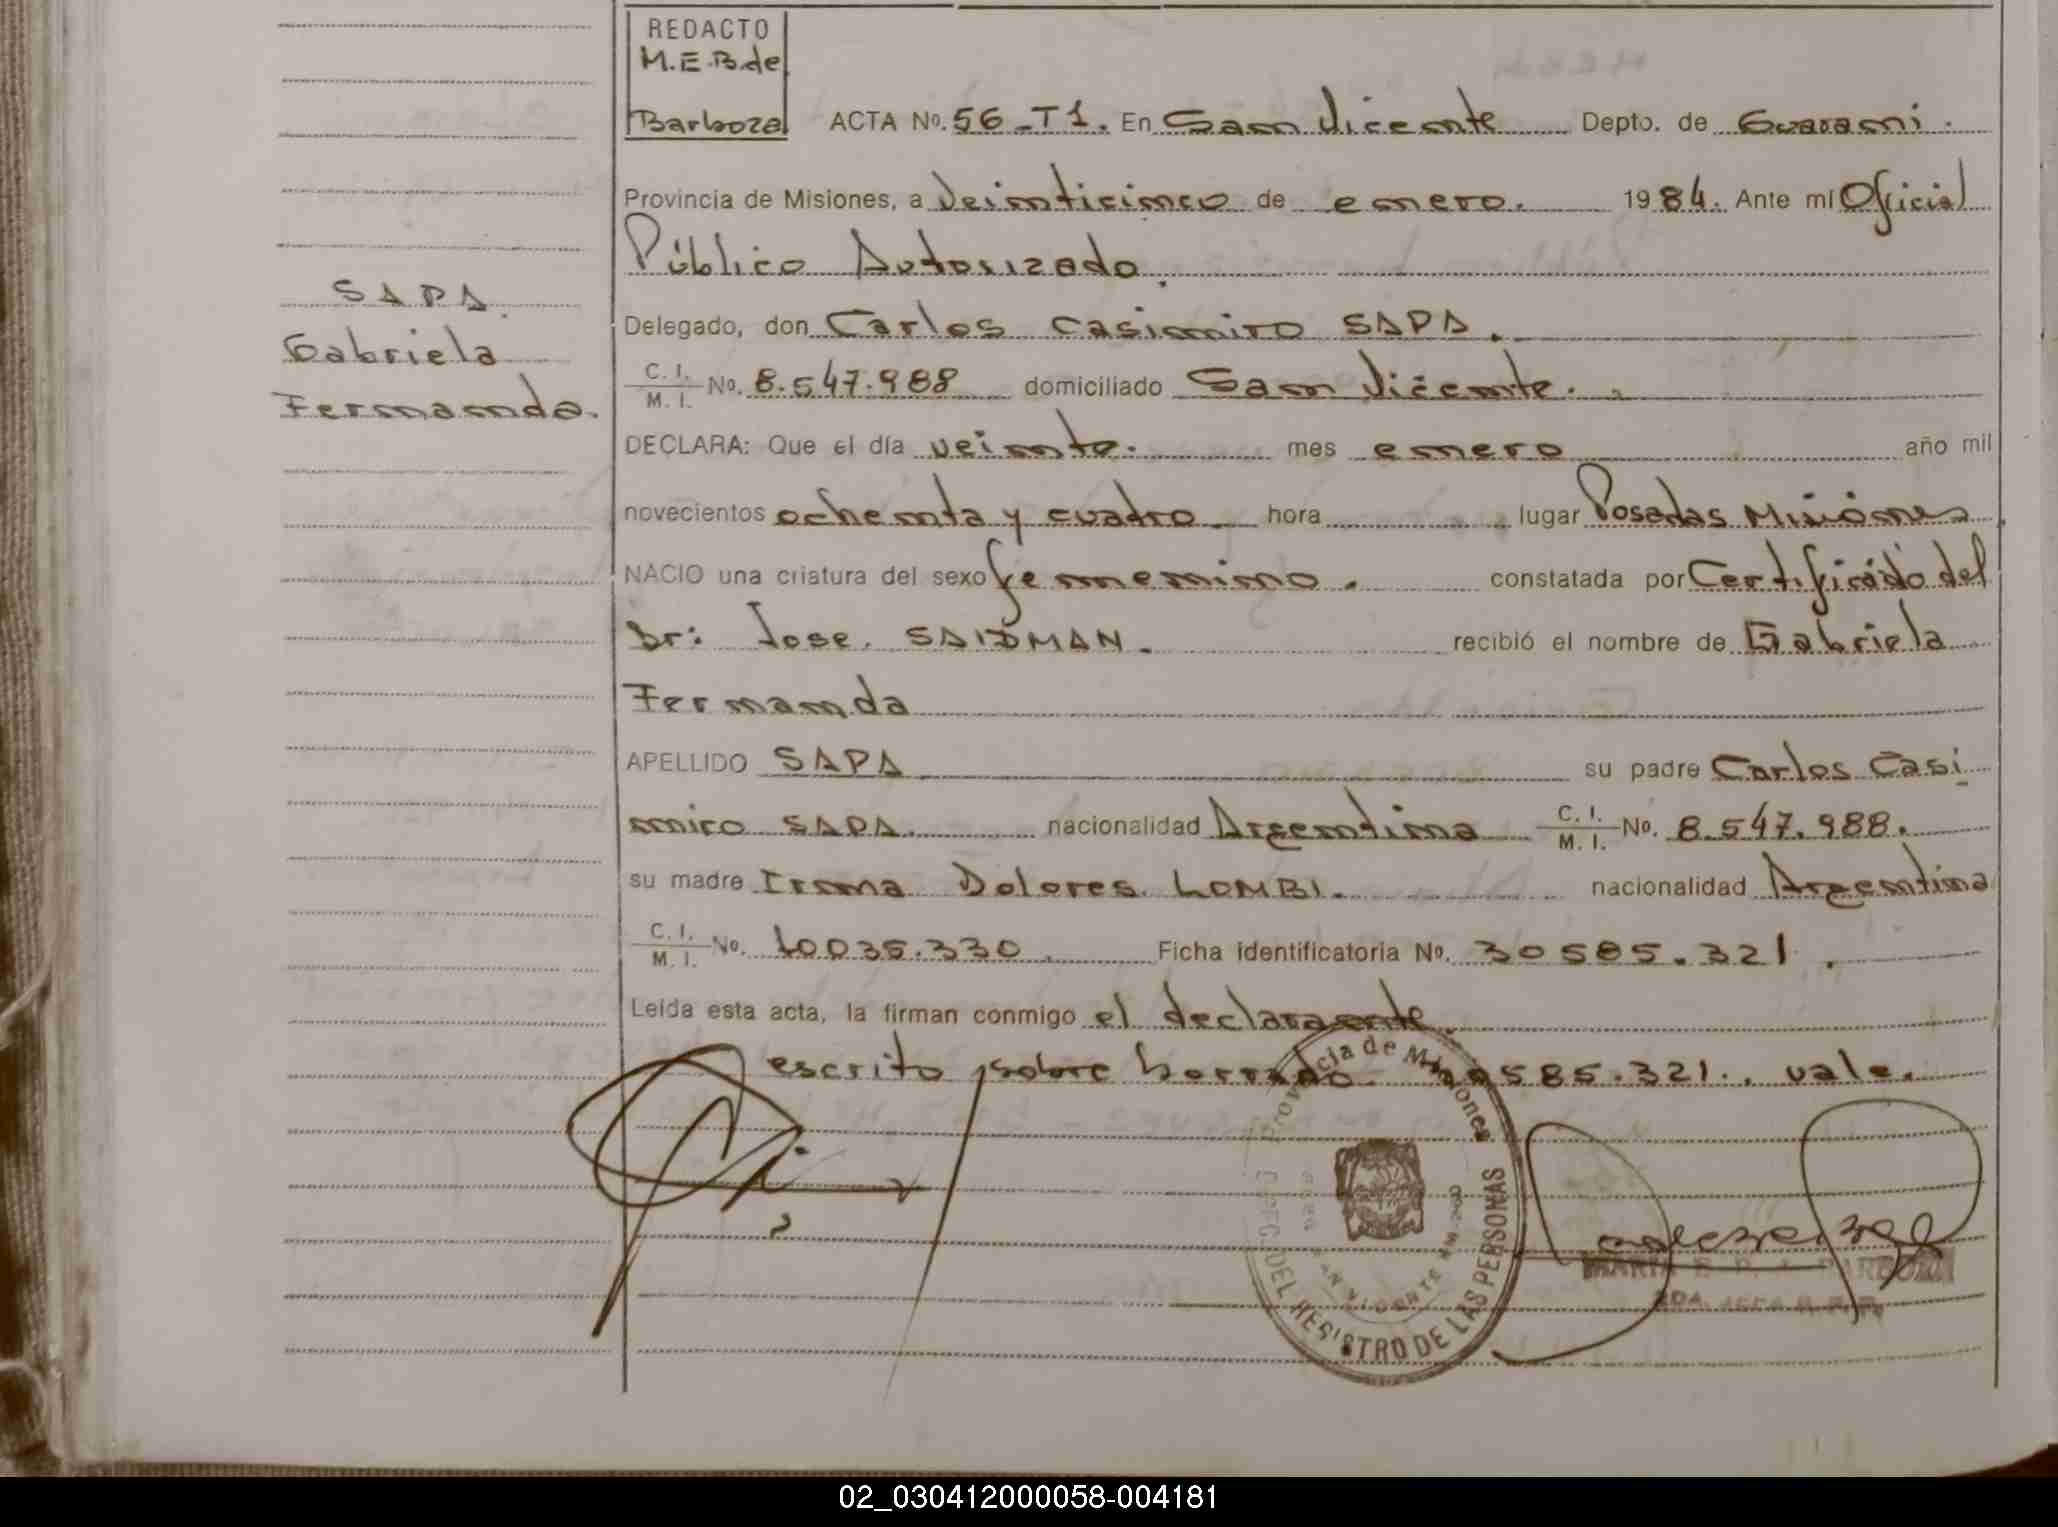 REDACTO
M.E.B.de
Barboza
ACTA No. 56-T1. En San Vicente Depto. de Guarani.
Provincia de Misiones, a Veinticinco de enero. 1984. Ante mí Oficial
Público Autorizado.
SAPA
Gabriela
Fernanda.
Delegado, don Carlos Casimiro SAPA.
C. I. / M. I. No. 8.547.988 domiciliado San Vicente.
DECLARA: Que el día veinte. mes enero año mil
novecientos ochenta y cuatro hora lugar Posadas Misiones
NACIO una criatura del sexo femenino. constatada por Certificado del
Dr: Jose. SAIDMAN. recibió el nombre de Gabriela
Fernanda
APELLIDO SAPA su padre Carlos Casi
miro SAPA. nacionalidad Argentina C. I. / M. I. No. 8.547.988.
su madre Irma Dolores LOMBI. nacionalidad Argentina
C. I. / M. I. No. 10035.330. Ficha identificatoria No. 30585.321.
Leída esta acta, la firman conmigo el declaraente.
escrito sobre borrado. 30585.321. vale.
Provincia de Misiones
DEL REGISTRO DE LAS PERSONAS
SAN VICENTE
MARIA E. BARBOZA
02_030412000058-004181